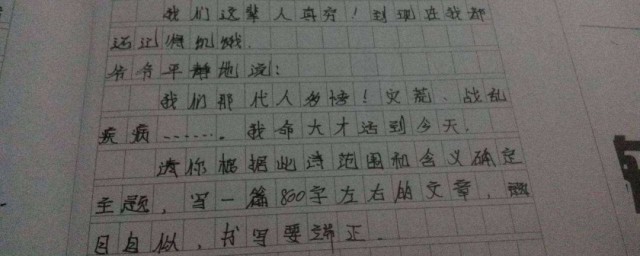 我们这辈人真穷！到现在我都
还记得饥饿.
爷爷平静地说：
我们那代人多惨！灾荒、战乱
疾病……。我命大才活到今天.
请你根据此诗范围和含义确定
主题，写一篇800字左右的文章，
目自似，书写要端正.